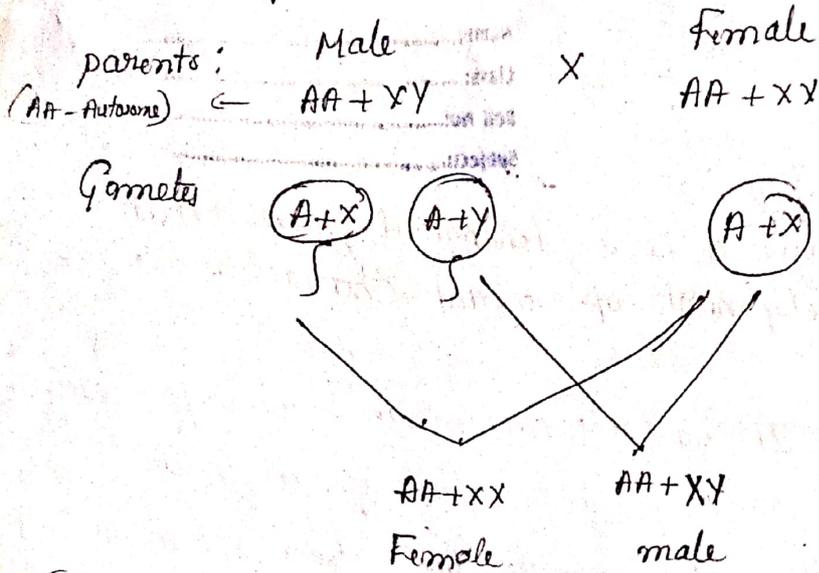 Male Female
parents :
(AA - Autosome) ← AA + XY X AA + XX
Gametes
A+X A+Y A+X
AA+XX AA+XY
Female male